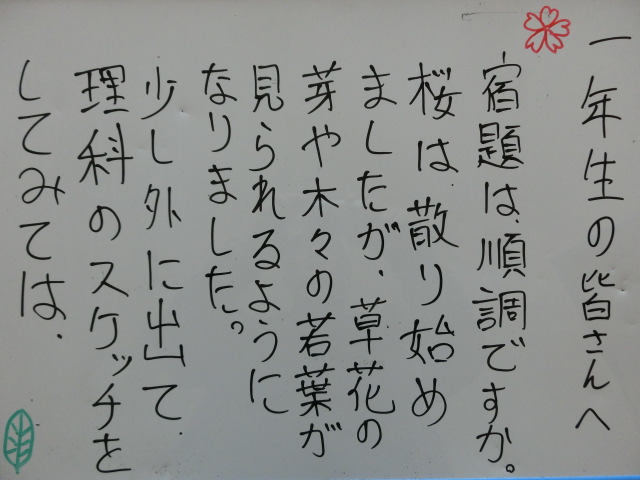 一年生の皆さんへ
宿題は、順調ですか。
桜は散り始め
ましたが、草花の
芽や木々の若葉が
見られるように
なりました。
少し外に出て
理科のスケッチを
してみては、